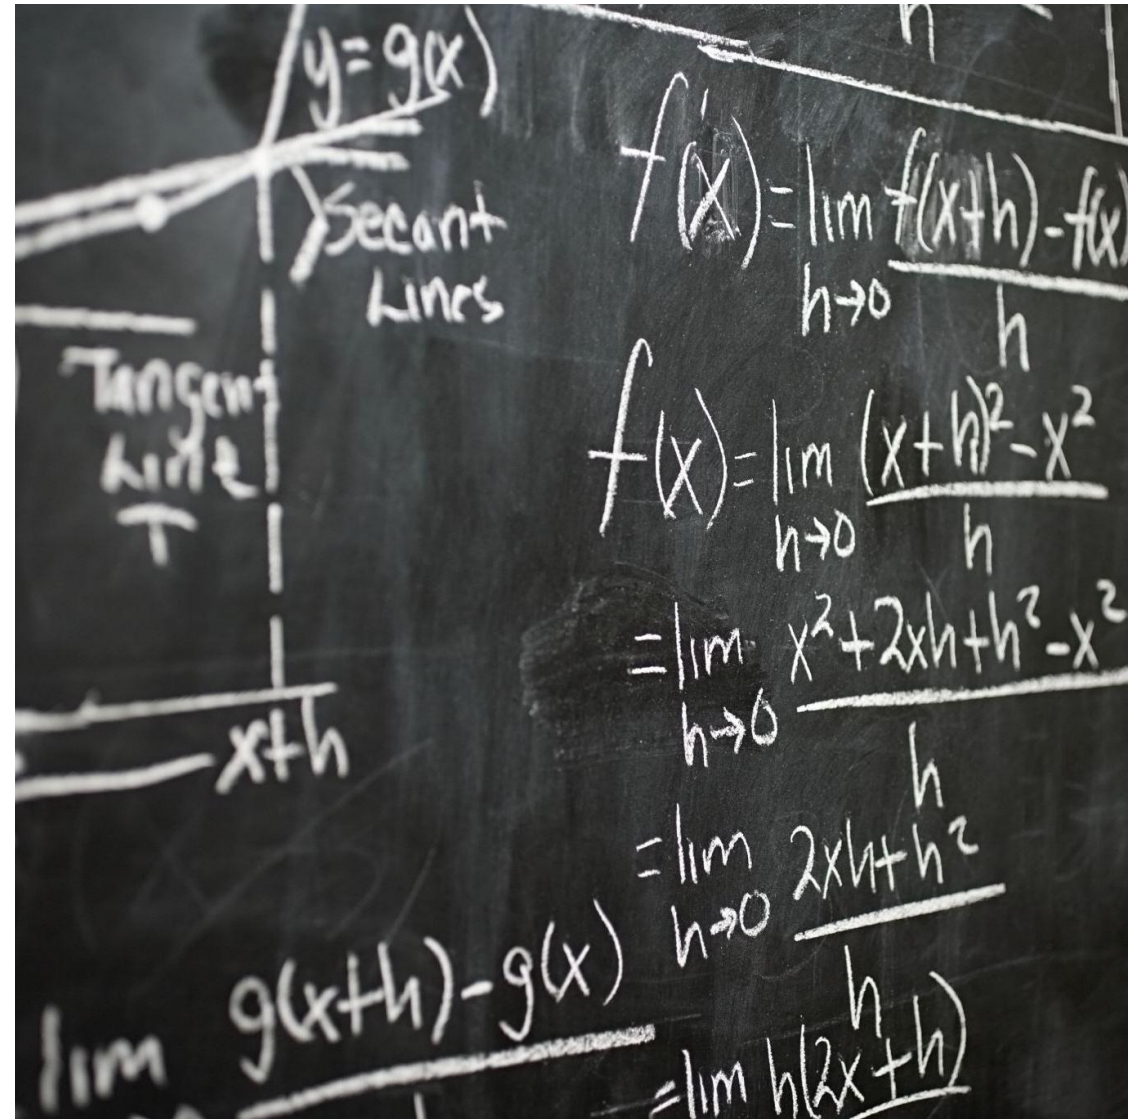 y = g(x)
Secant
Lines
Tangent
Line
T
x+h
lim g(x+h) - g(x)
h
f'(x) = lim f(x+h) - f(x)
h→0 h
f(x) = lim (x+h)² - x²
h→0 h
= lim x² + 2xh + h² - x²
h→0 h
= lim 2xh + h²
h→0 h
= lim h(2x+h)